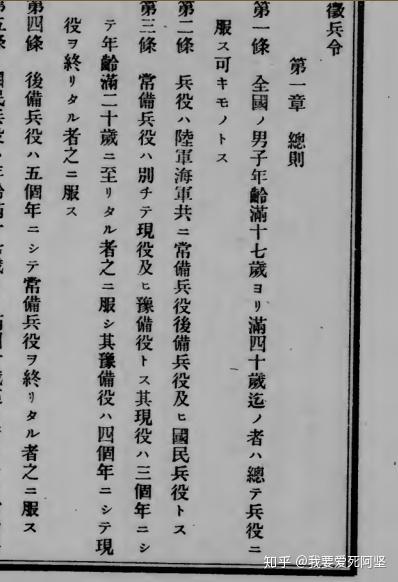 徵兵令
第一章 總則
第一條 全國ノ男子年齡滿十七歲ヨリ滿四十歲迄ノ者ハ總テ兵役ニ
服ス可キモノトス
第二條 兵役ハ陸軍海軍共ニ常備兵役後備兵役及ヒ國民兵役トス
第三條 常備兵役ハ別チテ現役及ヒ豫備役トス其現役ハ三個年ニシ
テ年齡滿二十歲ニ至リタル者之ニ服シ其豫備役ハ四個年ニシテ現
役ヲ終リタル者之ニ服ス
第四條 後備兵役ハ五個年ニシテ常備兵役ヲ終リタル者之ニ服ス
知乎 @我要爱死阿坚